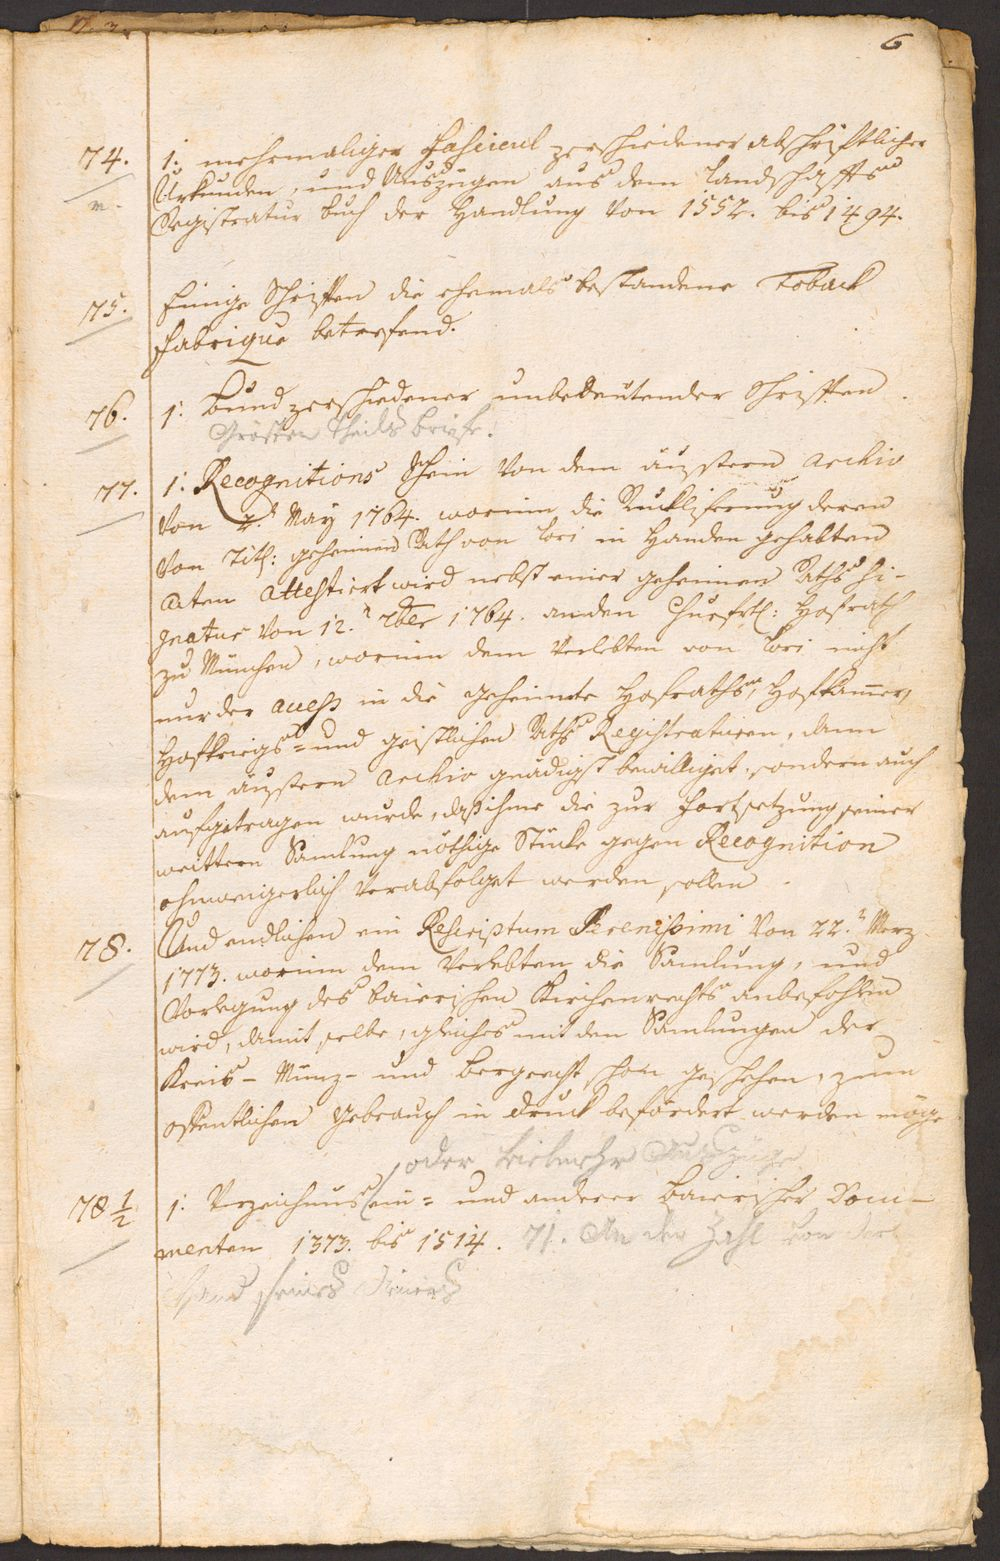 6
74. 1: mehrmaliger Fascicul zerschiedener abschriftlicher
Urkunden, und Auszügen aus dem Landschaffts
Registratur buch der Handlung von 1552. bis 1494.
75. Einige Schriften die ehemals bestandene Toback
Fabrique betrefend.
76. 1: Bund zerschiedener unbedeutender Schriften
Grösten Theils briefe.
77. 1: Recognitions schein von dem äussern Archiv
von 2t May 1764. worinn die Rucklieferung deren
von Titl: geheimen Rath von Lori in Handen gehabten
Acten attestiert wird nebst einer geheimen Raths Si-
gnatur von 12.t 7ber 1764. an den Churfrtl: Hofrath
zu München, worinn dem Verlebten von Lori nicht
nur der Access in die geheimte Hofraths, Hofkammer,
Hofkriegs- und geistlichen Raths Registraturen, dann
dem äussern Archiv gnädigst bewilliget, sondern auch
aufgetragen wurde, daß ihme die zur Fortsetzung seiner
weittern Samlung nöthige Stücke gegen Recognition
ohnweigerlich verabfolget werden sollen.
78. Und endlichen ein Rescriptum Serenissimi von 22.t Merz
1773. worinn dem Verlebten die Samlung, und
Vorlegung des baierischen Kirchenrechts anbefohlen
wird, damit selbe, gleiches mit den Samlungen der
Kreis- Münz- und Bergrecht schon geschehen, zum
öffentlichen Gebrauch in Druck befördert werden möge
oder vielmehr Auszüge
78 1/2 1: Verzeichnus ein- und anderer baierischer Docu-
menten 1373. bis 1514. 71. An der Zahl von der
Hand seines